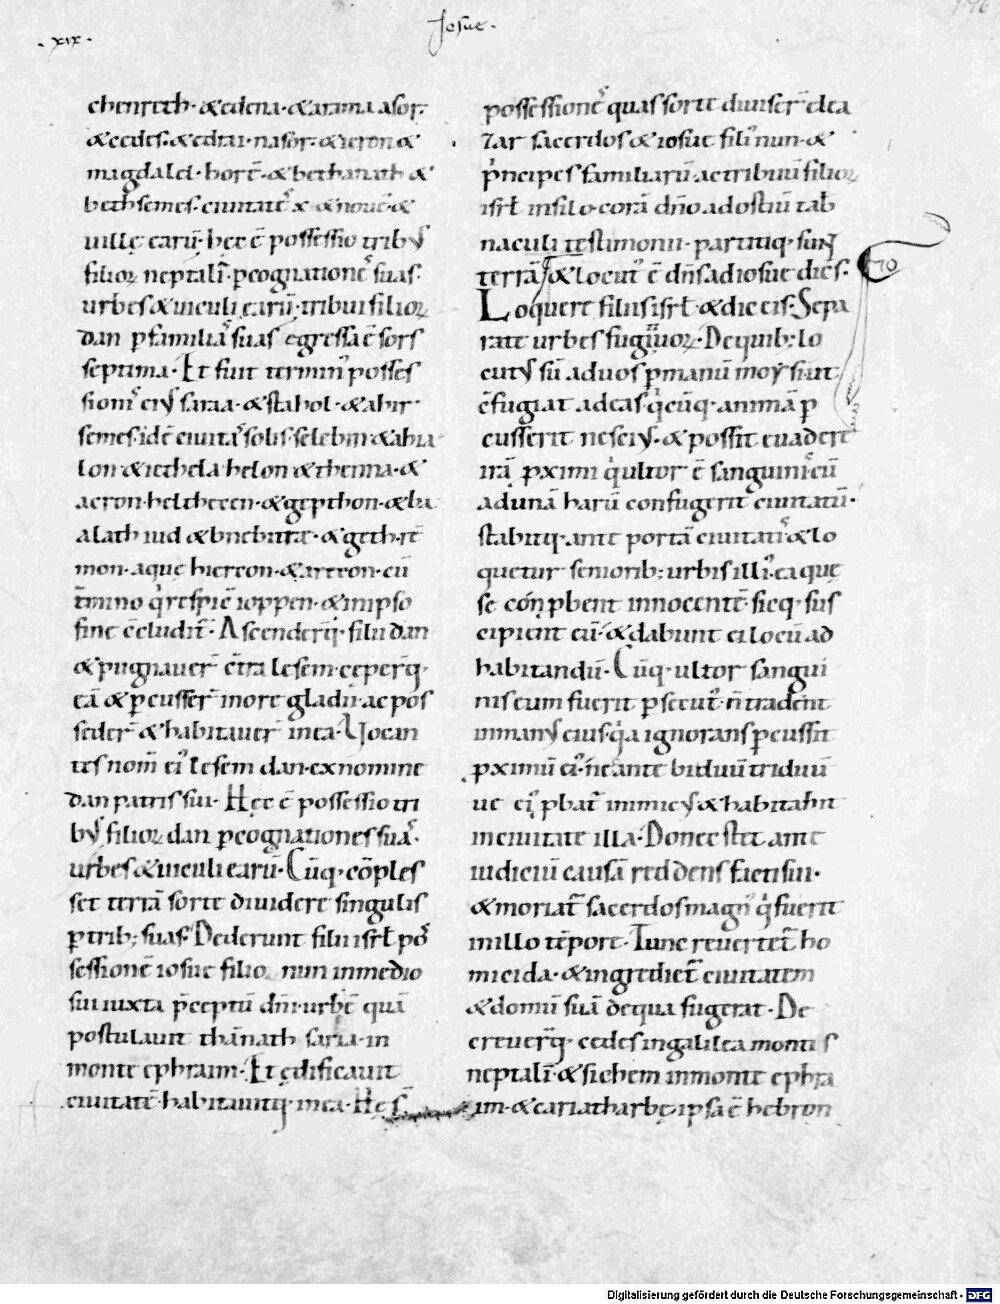 Josue.
.xix.
chenreth. & edena. & arama asor.
& cedes. & edrai. nasor. & ieron &
magdalel. horē. & bethanath &
bethsemes. ciuitatē x & nouē. &
uillę earū. hec ē possessio tribꝰ
filioꝝ neptali. p cognationeˢ suas.
urbes & uiculi earū. tribui filioꝝ
dan p familiaˢ suas egressa ē sors
septima. Et fuit terminꝰ posses
sionis eiꝰ saraa. & stahol. & ahir
semes. idē ciuitaˢ solis. selebin & ahia
lon & iethela helon & themna. &
acron. heltheeen. & gepthon. & ba
alath iud & bnebarac. & geth re
mon. aquę hiereon. & areeon. cū
t̄mino q̇ respic̄ ioppen. & in ipso
fine c̄cludit̄. Ascenderūq̨. filii dan
& pugnauer̄ c̄tra lesem. ceperūq̨.
eā & pcusser̄ in ore gladii. ac pos
seder̄ & habitauer̄ in ea. Uocan
tes nom̄ eiꝰ lesem dan. ex nomine
dan patris sui. Hec ē possessio tri
bꝰ filioꝝ dan p cognationes suaˢ.
urbes & uiculi earū. Cūq̨. cōples
set terrā sorte diuidere singulis
p trib; suas. Dederunt filii isrł pos
sessionē iosue filio nun in medio
sui iuxta p̄ceptū dn̄i. urbē quā
postulauit thānath saraa. in
monte ephraim. Et ędificauit
ciuitatē. habitauitq̨. in ea. Hę s̄
possessioneˢ quas sorte diuiser̄ elea
zar sacerdos & iosue filiꝰ nun. &
p̍ncipes familiarū ac tribuū filioꝝ
isrł in silo. corā dn̄o ad ostiū tab̄
naculi testimonii. partitiq̨. sunt
terrā. & locutꝰ ē dn̄s ad iosue dicˢ.
Loquere filiis isrł. & dic eis. Sepa
rate urbes fugitiuoꝝ. De quib; lo
cutꝰ sū ad uos p manū moysi. ut
c̄fugiat ad eas q̇cūq̨. animā p
cusserit nesciꝰ. & possit euadere
irā pximi q̇ ultor ē sanguinis. cū
ad unā harū confugerit ciuitatū.
stabitq̨. ante portā ciuitatiˢ & lo
quetur seniorib; urbis illiꝰ. ea quę
se cōp̱bent innocentē. sicq̨. sus
cipient eū. & dabunt ei locū ad
habitandū. Cūq̨. ultor sangui
nis eum fuerit psecutꝰ. n̄ tradent
in manꝰ eius. q̇a ignorans pcussit
pximū eiꝰ. nec ante biduū triduū
ue eiꝰ pbat̄ inimicꝰ & habitabit
in ciuitate illa. Donec stet ante
iudiciū causā reddens facti sui.
& moriat̄ sacerdos magnꝰ q̇ fuerit
in illo tēpore. Tunc reuertet̄ ho
micida. & ingrediet̄ ciuitatem
& domū suā de qua fugerat. De
creuerūq̨. cedes in galilea montis
neptali. & sichem in monte ephra
im. & cariatharbę. ipsa ē hebron
Digitalisierung gefördert durch die Deutsche Forschungsgemeinschaft - DFG